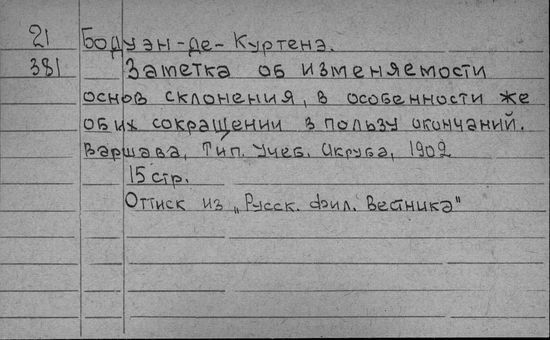 21 Бодуэн-де-Куртенэ.
381 Заметка об изменяемости
основ склонения, в особенности же
об их сокращении в пользу окончаний.
Варшава, Тип. Учеб. Округа, 1902
15 стр.
Оттиск из „Русск. фил. Вестника"